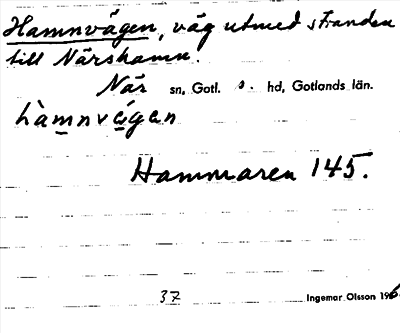 Hamnvägen, väg utmed stranden
till Närshamn.
När sn, Gotl. s. hd, Gotlands län.
hàmnvä́gan
Hammaren 145.
37 Ingemar Olsson 196